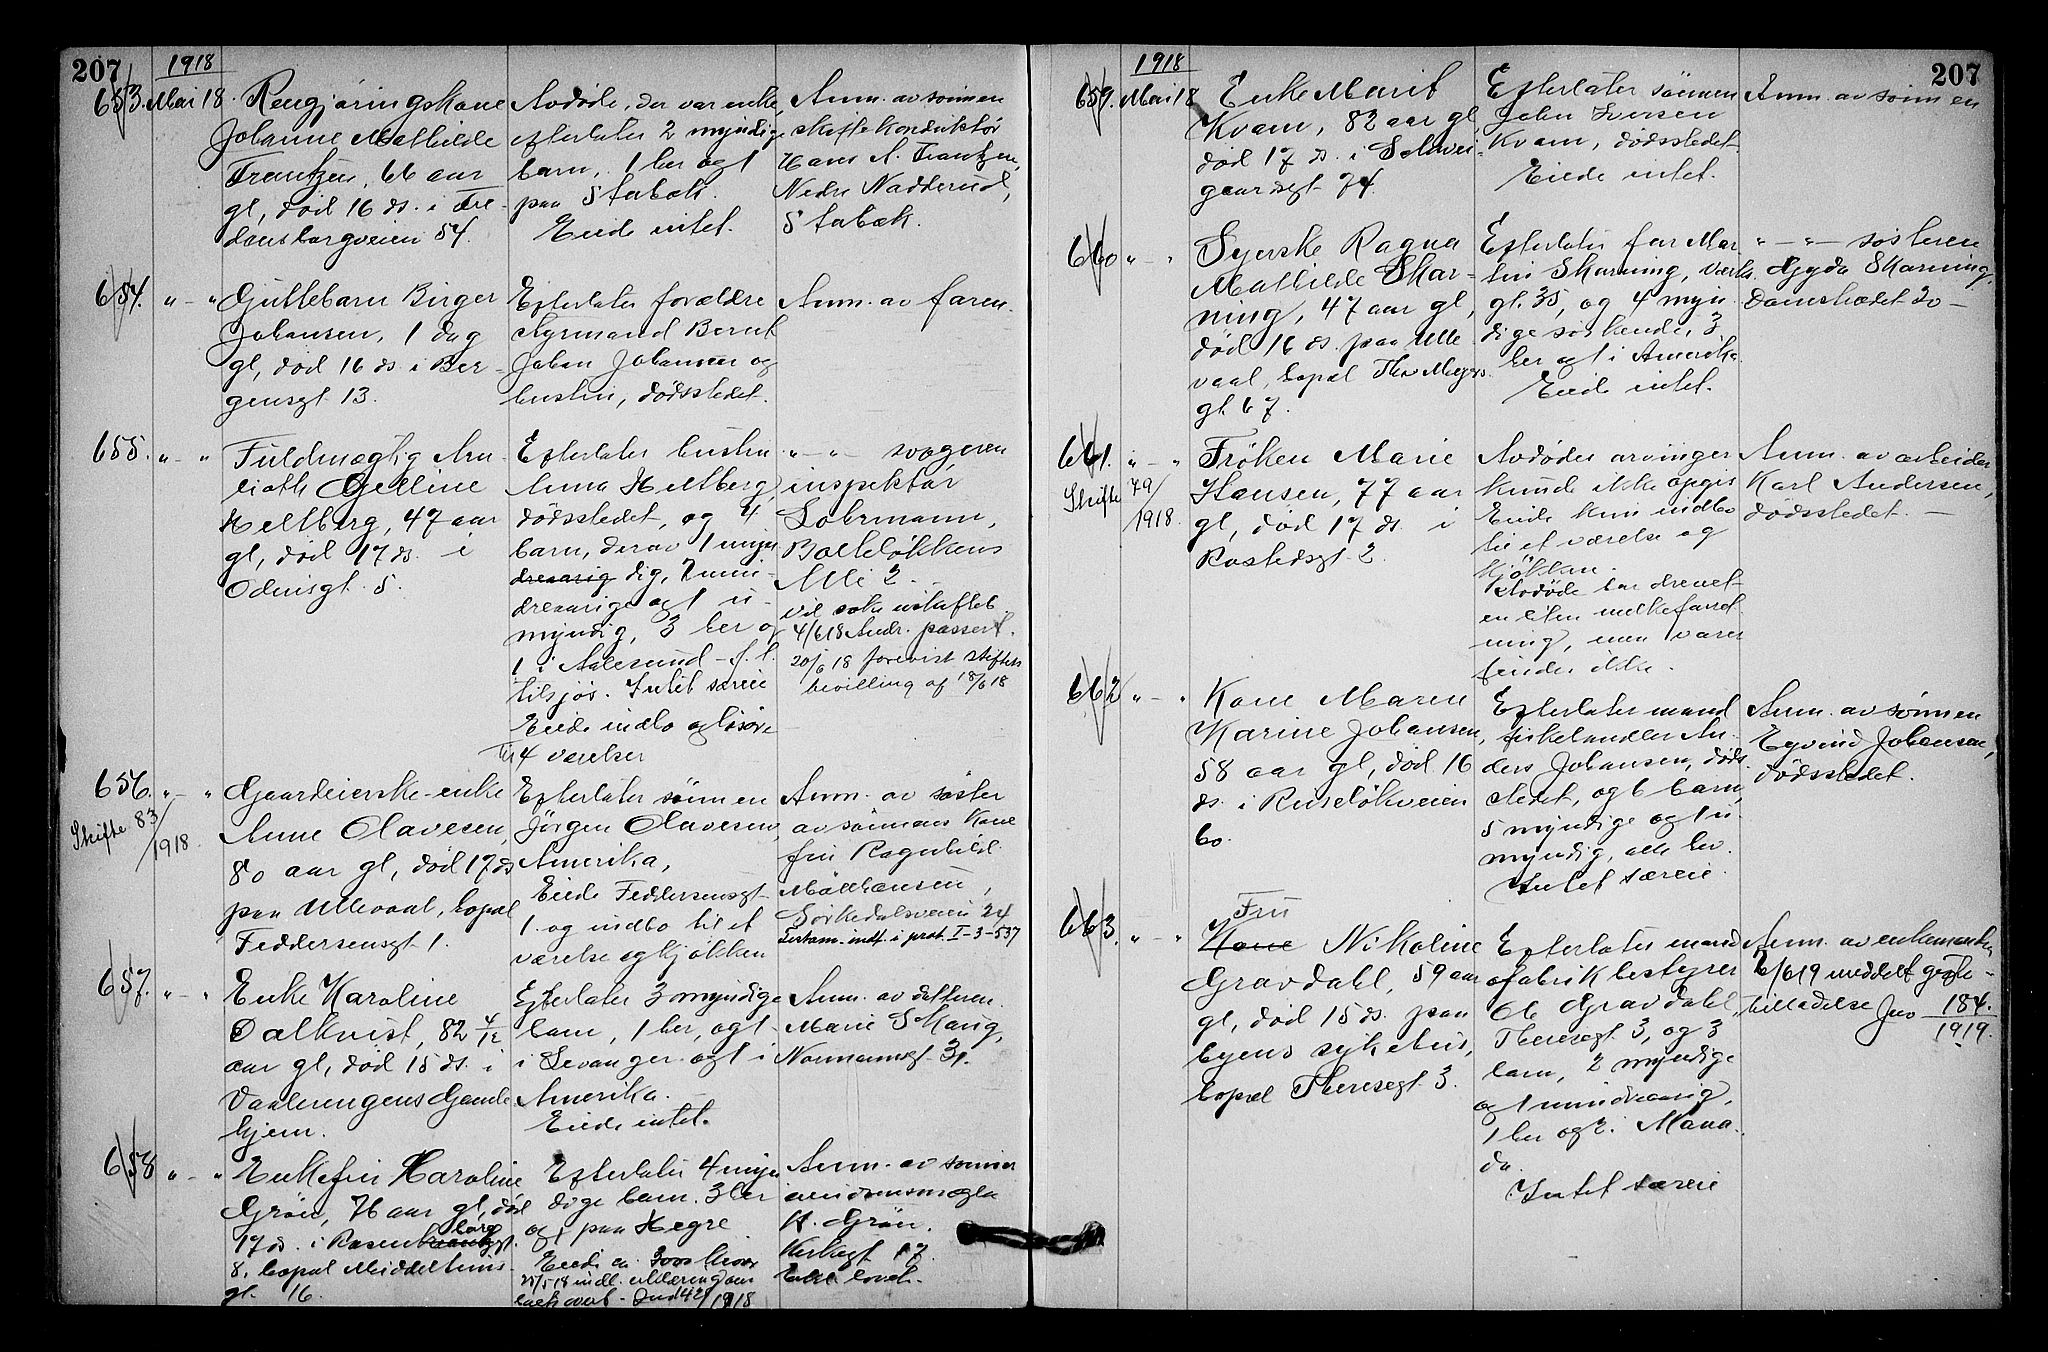 207
1918
653. Mai 18. Rengjøringskone
Johanne Mathilde
Frantzen, 66 aar
gl, død 16 ds. i Tre-
dansborgveien 54.
Avdøde, der var enke,
efterlater 2 myndige
barn, 1 her og 1
paa Stabæk.
Eiede intet.
Anm. av sønnen
Hans A. Frantzen,
Nedre Nadderud,
Stabæk.
654. " - " Guttebarn Birger
Johansen, 1 dag
gl, død 16 ds i Ber-
gensgt 13.
Efterlater forældre
Styrmand Bernt
Johan Johansen og
hustru, dødsstedet.
Anm. av faren.
655. " - " Fuldmægtig An-
Heltberg, 47 aar
gl, død 17 ds. i
Odinsgt. 5.
Efterlater hustru
Anna Heltberg,
dødsstedet, og 4
barn, derav 1 myn
dreaarig dig, 2 min-
dreaarige og 1 u-
myndig, 3 her og
1 i Aalesund - f. t.
tilsjøs. Intet særeie
Eiede indbo og løsøre
til 4 værelser
" - " svogeren
inspektør
Lohrmann,
Balteløkkens
Alle 2.
vil søke uskiftet.
4/6 18 Andr. passert.
20/6 18 forevist skiftets
bevilling af 18/6 18
656. " - " Gaardeierske-enke
Skifte 83/1918.
Anne Olavesen,
80 aar gl, død 17 ds
paa Ullevaal, bopæl
Feddersensgt 1.
Efterlater sønnen
Jörgen Olavesen,
Amerika,
Eiede Feddersensgt
1. og indbo til et
værelse og kjøkken
Anm. av søster
av sønnens kone
fru Ragnhild
Møllhausen,
Sörkedalsveien 24
Testam. indf. i prot. I-3-537
657. " - " Enke Karoline
Dalkvist, 82 4/12
aar gl, død 15 ds. i
Vaalerengens Gamle
hjem.
Efterlater 3 myndige
barn, 1 her, og 1
i Levanger og 1 i
Amerika.
Eiede intet.
Anm. av datteren
Marie Skaug,
Normannsgt 31.
658 " - " Enkefru Karoline
Grøn, 76 aar gl, død
17 ds. i Rosenkrantzgt. borg
8, bopæl Middelthuns-
gt. 16.
Efterlater 4 myn
dige barn. 3 her
og 1 paa Hegre
Eiede ca. 3000 kroner
indl. erklæring om
1918
Anm. av sønnen
eiendomsmægler
H. Grøn.
Kirkegt 17.
207
1918
659. Mai 18 Enke Marit
Kvam, 82 aar gl,
død 17 ds. i Schwei-
gaardsgt 74.
Efterlater sønnen
John Iversen
Kvam, dødsstedet.
Eiede intet.
Anm. av sønnen
660 " - " Syerske Ragna
Mathilde Skar-
ning, 47 aar gl,
død 16 ds. paa Ulle
vaal, bopæl Thv Meyers
gt 67.
Efterlater far Mar
tin Skarning, Værks
gt. 35, og 4 myn
dige søskende, 3
her og 1 i Amerika.
Eiede intet.
" - " søsteren
Gyda Skarning,
Damstrædet 20 -
661. " - " Frøken Marie
Skifte 79/1918.
Hansen, 77 aar
gl, død 17 ds. i
Rostedsgt 2.
Avdødes arvinger
kunde ikke opgis
Eiede kun indbo
til et værelse og
kjøkken.
Avdøde har drevet
en liten melkeforret
ning, men varer
findes ikke.
Anm. av arbeider
Karl Andersen,
dødsstedet. -
662 " - " Kone Maren
Karine Johansen,
58 aar gl, død 16
ds. i Ruseløkveien
60.
Efterlater mand
fiskehandler An-
ders Johansen, døds-
stedet, og 6 barn,
5 myndige og 1 u-
myndig, alle her.
Intet særeie.
Anm. av sønnen
Eyvind Johansen,
dødsstedet.
663. " - " Fru
Kone Nikoline
Gravdahl, 59 aar
gl, død 15 ds. paa
byens sykehus,
bopæl Theresegt 3.
Efterlater mand
fabrikbestyrer
Ole Gravdahl,
Theresegt 3, og 3
barn, 2 myndige
og 1 mindreaarig,
1 her og 2 i Mana-
da.
Intet særeie
Anm. av enkemanden
6/6 19 meddelt gifte-
tilladelse Jno 184.
1919.